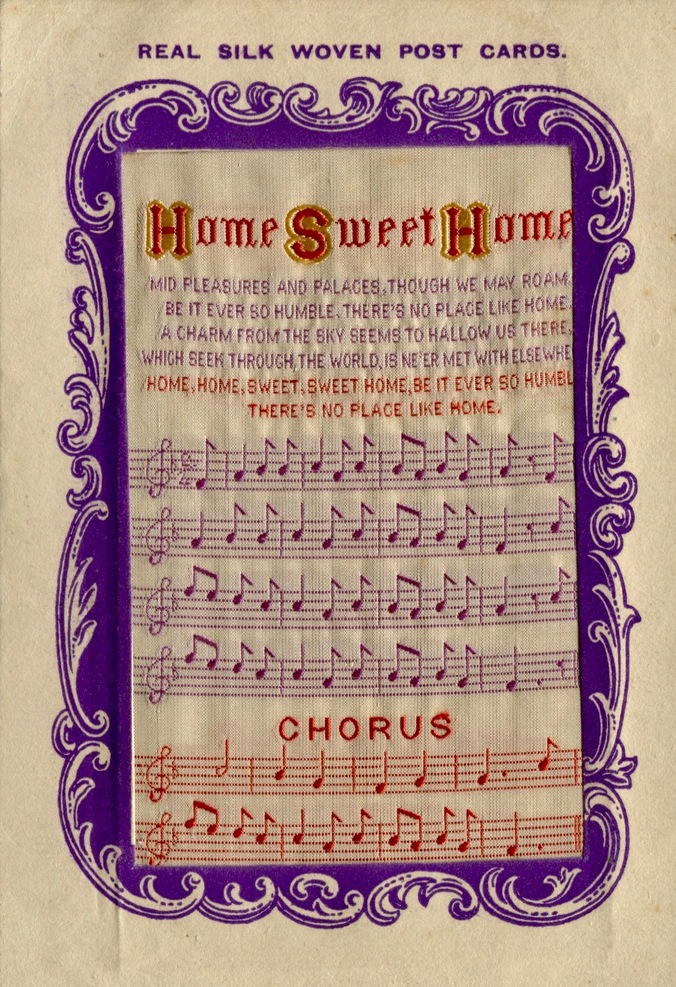 REAL SILK WOVEN POST CARDS.
Home Sweet Home
MID PLEASURES AND PALACES, THOUGH WE MAY ROAM,
BE IT EVER SO HUMBLE, THERE'S NO PLACE LIKE HOME.
A CHARM FROM THE SKY SEEMS TO HALLOW US THERE,
WHICH SEEK THROUGH, THE WORLD, IS NE'ER MET WITH ELSEWHE
HOME, HOME, SWEET, SWEET HOME, BE IT EVER SO HUMBL
THERE'S NO PLACE LIKE HOME.
CHORUS